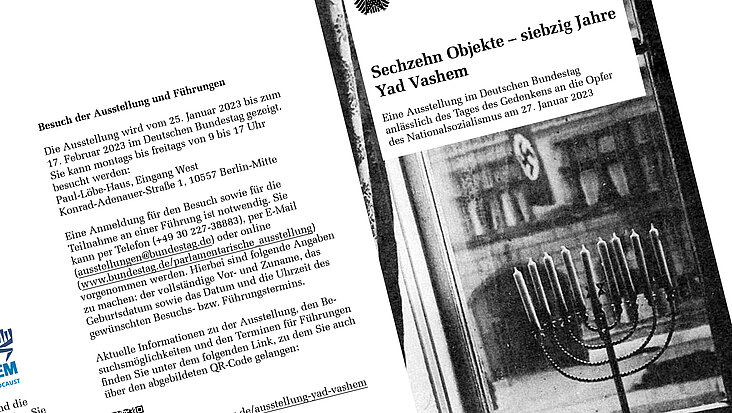 Besuch der Ausstellung und Führungen
Die Ausstellung wird vom 25. Januar 2023 bis zum
17. Februar 2023 im Deutschen Bundestag gezeigt.
Sie kann montags bis freitags von 9 bis 17 Uhr
besucht werden:
Paul-Löbe-Haus, Eingang West
Konrad-Adenauer-Straße 1, 10557 Berlin-Mitte
Eine Anmeldung für den Besuch sowie für die
Teilnahme an einer Führung ist notwendig. Sie
kann per Telefon (+49 30 227-38883), per E-Mail
(ausstellungen@bundestag.de) oder online
(www.bundestag.de/parlamentarische_ausstellung)
vorgenommen werden. Hierbei sind folgende Angaben
zu machen: der vollständige Vor- und Zuname, das
Geburtsdatum sowie das Datum und die Uhrzeit des
gewünschten Besuchs- bzw. Führungstermins.
Aktuelle Informationen zu der Ausstellung, den Be-
suchsmöglichkeiten und den Terminen für Führungen
finden Sie unter dem folgenden Link, zu dem Sie auch
über den abgebildeten QR-Code gelangen:
.de/ausstellung-yad-vashem
EM
OCAUST
nd die
Sie
Sechzehn Objekte – siebzig Jahre
Yad Vashem
Eine Ausstellung im Deutschen Bundestag
anlässlich des Tages des Gedenkens an die Opfer
des Nationalsozialismus am 27. Januar 2023